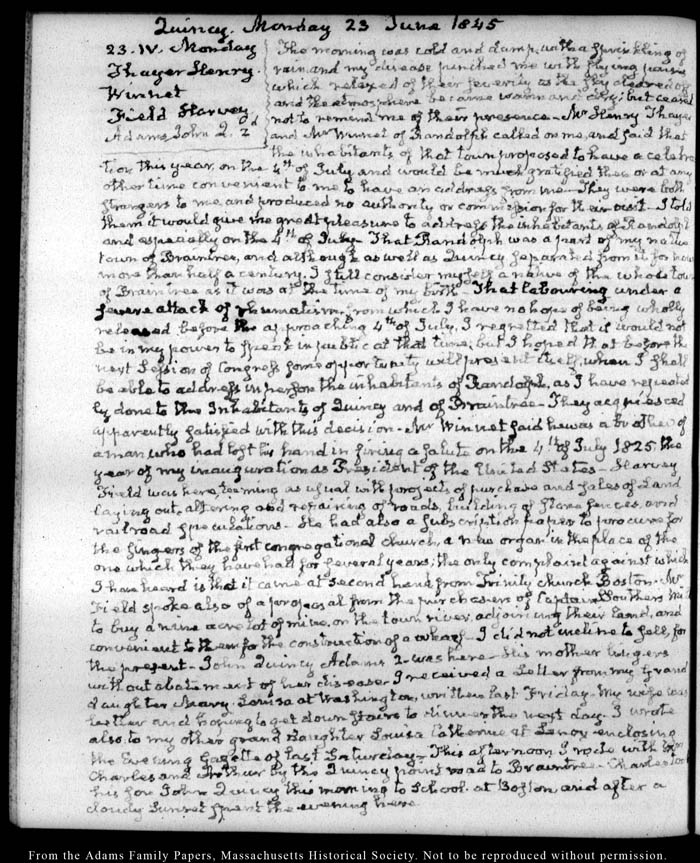 Quincy. Monday 23 June 1845
23. IV. Monday
Thayer Henry.
Winnet
Field Harvey
Adams John Q. 2.d
The morning was cold and damp, with a sprinkling of
rain, and my disease pinched me with flying pains
which relaxed of their severity as the sky cleared off
and the atmosphere became warm and dry; but ceased
not to remind me of their presence. Mr Henry Thayer
and Mr Winnet of Randolph called on me, and said that
the inhabitants of that town proposed to have a celebra
tion this year, on the 4th of July and would be much gratified then or at any
other time convenient to me to have an address from me. They were both
strangers to me, and produced no authority or commission for their visit. I told
them it would give me great pleasure to address the inhabitants of Randolph
and especially on the 4th of July. That Randolph was a part of my native
town of Braintree, and although as well as Quincy separated from it for now
more than half a century, I still consider myself a native of the whole town
of Braintree as it was at the time of my birth. That labouring under a
severe attack of rheumatism, from which I have no hope of being wholly
released before the approaching 4th of July, I regretted that it would not
be in my power to speak in public at that time, but I hoped that before the
next Session of Congress some opportunity will present itself, when I shall
be able to address in person the inhabitants of Randolph, as I have repeated
ly done to the Inhabitants of Quincy and of Braintree. They acquiesced
apparently satisfied with this decision. Mr Winnet said he was a brother of
a man who had lost his hand in firing a salute on the 4th of July 1825 the
year of my inauguration as President of the United States. Harvey
Field was here, teeming as usual with projects of purchase and sales of Land
laying out, altering and repairing of roads, building of stone fences, and
railroad speculations. He had also a subscription paper to procure for
the singers of the first congregational church, a new organ in the place of the
one which they have had for several years; the only complaint against which
I have heard is that it came at second hand from Trinity church Boston. Mr
Field spoke also of a proposal from the purchasers of Captain Southers
to buy a nine acre lot of mine, on the town river, adjoining their land, and
convenient to them for the construction of a wharf. I did not incline to sell, for
the present. John Quincy Adams 2. was here. His mother lingers
without abatement of her disease. I received a Letter from my grand
daughter Mary-Louisa at Washington, written last Friday. My wife was
better and hoping to get down stairs to dinner the next day. I wrote
also to my other grand daughter Louisa Catherine at Lenox enclosing
the Evening Gazette of last Saturday. This afternoon I rode with
Charles and Arthur by the Quincy point road to Braintree. Charles took
his son John Quincy this morning to School at Boston and after a
cloudy Sunset spent the evening here
From the Adams Family Papers, Massachusetts Historical Society. Not to be reproduced without permission.